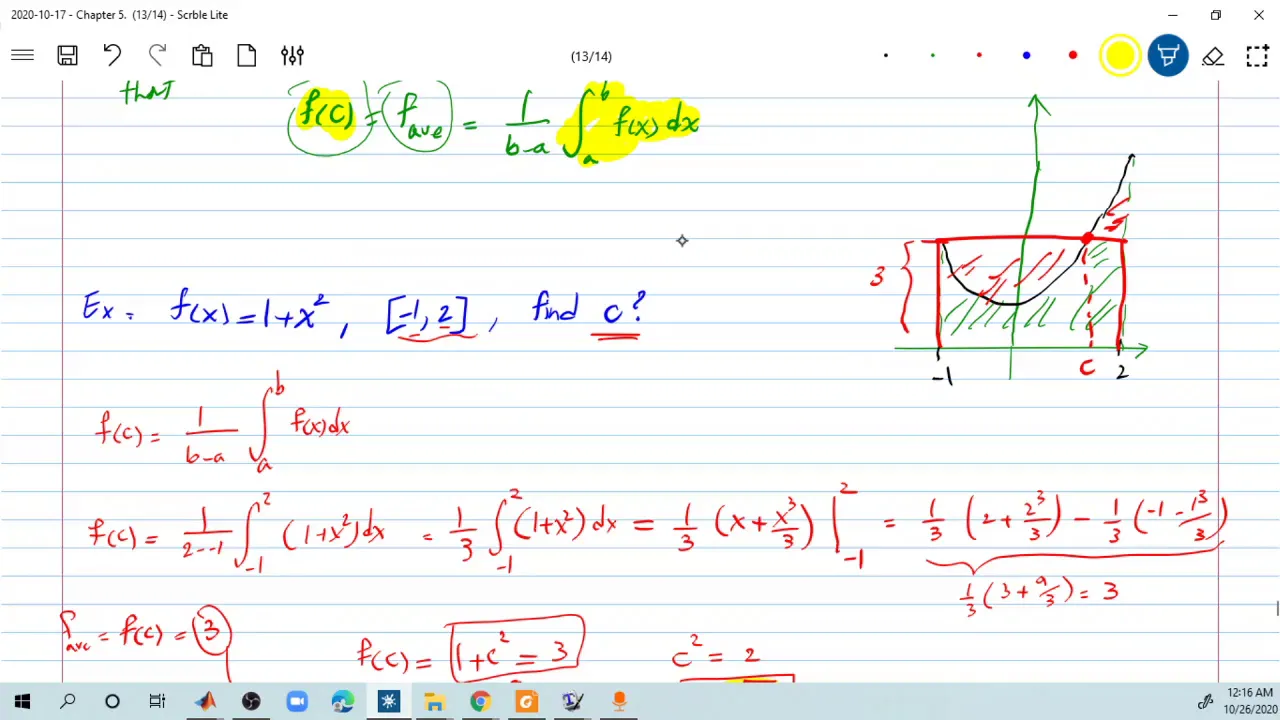 2020-10-17 - Chapter 5. (13/14) - Scrble Lite
(13/14)
that
f(c) = f_ave = 1/(b-a) ∫_a^b f(x) dx
Ex. f(x) = 1+x², [-1, 2], find c?
3
-1 c 2
f(c) = 1/(b-a) ∫_a^b f(x) dx
f(c) = 1/(2--1) ∫_-1^2 (1+x²) dx = 1/3 ∫_-1^2 (1+x²) dx = 1/3 (x + x³/3) |_-1^2 = 1/3 (2 + 2³/3) - 1/3 (-1 - 1³/3)
1/3 (3 + 9/3) = 3
f_ave = f(c) = 3
f(c) = 1+c² = 3
c² = 2
12:16 AM
10/26/2020